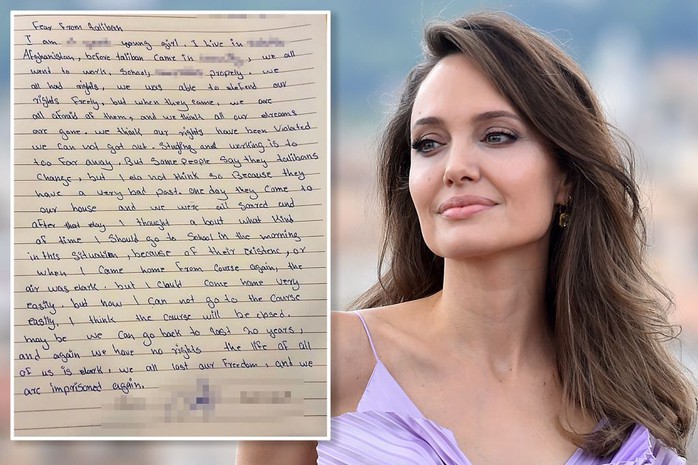 Fear From Taliban
I am young girl. I Live in
Afghanistan, before taliban came in , we all
went to work, School, properly. we
all had rights, we was able to defend our
rights Freely, but when they came, we are
all afraid of them, and we think all our dreams
are gone. we think our rights have been Violated
we can not got out. Studying and working is to
too Far away. But Some People Say they talibans
Change, but I do not think so Because they
have a very bad Past. one day they came to
our house and we were all Scared and
after that day I thought a bout what Kind
of time I Should go to School in the morning
in this Situation, because of their existenc, or
when I came home From course again, the
air was dark. but I Could come home very
easily, but now I can not go to the Course
easily, I think the course will be closed.
may be we can go back to last 20 years,
and again we have no rights the life of all
of us is dark, we all lost our Freedom, and we
are imprisoned again.